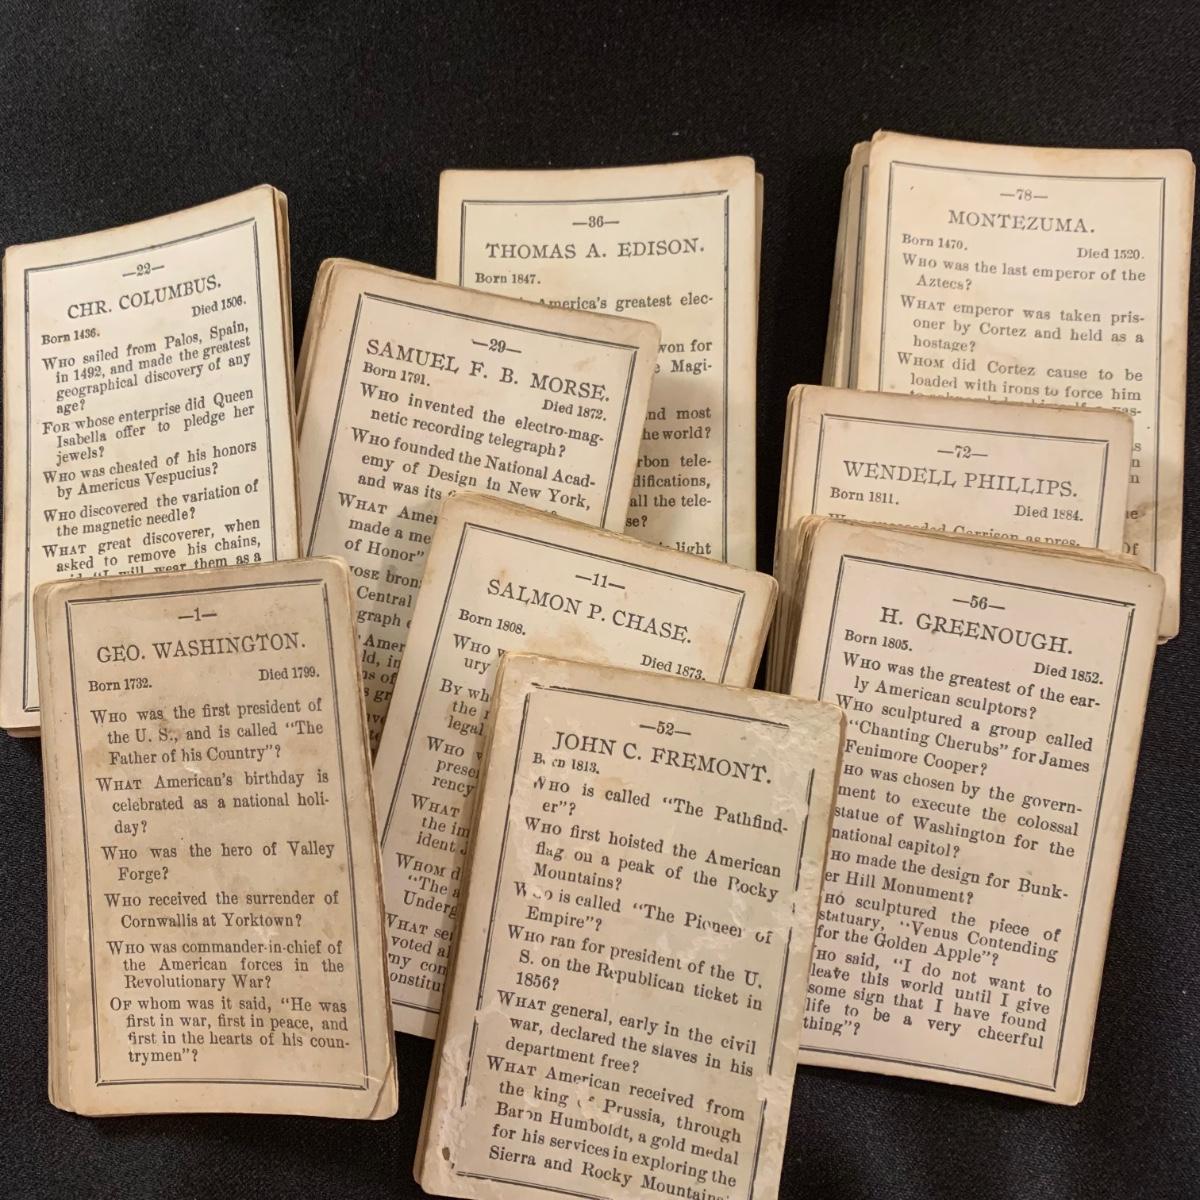 —22—
CHR. COLUMBUS.
Born 1436. Died 1506.
WHO sailed from Palos, Spain,
in 1492, and made the greatest
geographical discovery of any
age?
FOR whose enterprise did Queen
Isabella offer to pledge her
jewels?
WHO was cheated of his honors
by Americus Vespucius?
WHO discovered the variation of
the magnetic needle?
WHAT great discoverer, when
asked to remove his chains,
"I will wear them as a
—36—
THOMAS A. EDISON.
Born 1847.
America's greatest elec-
won for
Magi-
and most
the world?
rbon tele-
difications,
all the tele-
se?
light
—78—
MONTEZUMA.
Born 1470. Died 1520.
WHO was the last emperor of the
Aztecs?
WHAT emperor was taken pris-
oner by Cortez and held as a
hostage?
WHOM did Cortez cause to be
loaded with irons to force him
—29—
SAMUEL F. B. MORSE.
Born 1791. Died 1872.
WHO invented the electro-mag-
netic recording telegraph?
WHO founded the National Acad-
emy of Design in New York,
and was its
WHAT Amer
made a me
of Honor"
OSE bron
Central
graph
Amer
ld, in
—72—
WENDELL PHILLIPS.
Born 1811. Died 1884.
Garrison as pres-
—1—
GEO. WASHINGTON.
Born 1732. Died 1799.
WHO was the first president of
the U. S., and is called "The
Father of his Country"?
WHAT American's birthday is
celebrated as a national holi-
day?
WHO was the hero of Valley
Forge?
WHO received the surrender of
Cornwallis at Yorktown?
WHO was commander-in-chief of
the American forces in the
Revolutionary War?
OF whom was it said, "He was
first in war, first in peace, and
first in the hearts of his coun-
trymen"?
—11—
SALMON P. CHASE.
Born 1808. Died 1873.
WHO
ury
By wh
the
legal
WHO
presi
rency
WHAT
the im
ident J
WHOM d
"The a
Underg
WHAT se
voted a
my con
onstitut
—52—
JOHN C. FREMONT.
Born 1813.
WHO is called "The Pathfind-
er"?
WHO first hoisted the American
flag on a peak of the Rocky
Mountains?
WHO is called "The Pioneer of
Empire"?
WHO ran for president of the U.
S. on the Republican ticket in
1856?
WHAT general, early in the civil
war, declared the slaves in his
department free?
WHAT American received from
the king of Prussia, through
Baron Humboldt, a gold medal
for his services in exploring the
Sierra and Rocky Mountains?
—56—
H. GREENOUGH.
Born 1805. Died 1852.
WHO was the greatest of the ear-
ly American sculptors?
WHO sculptured a group called
"Chanting Cherubs" for James
Fenimore Cooper?
HO was chosen by the govern-
ment to execute the colossal
statue of Washington for the
national capitol?
HO made the design for Bunk-
er Hill Monument?
HO sculptured the piece of
statuary, "Venus Contending
for the Golden Apple"?
HO said, "I do not want to
leave this world until I give
some sign that I have found
life to be a very cheerful
thing"?